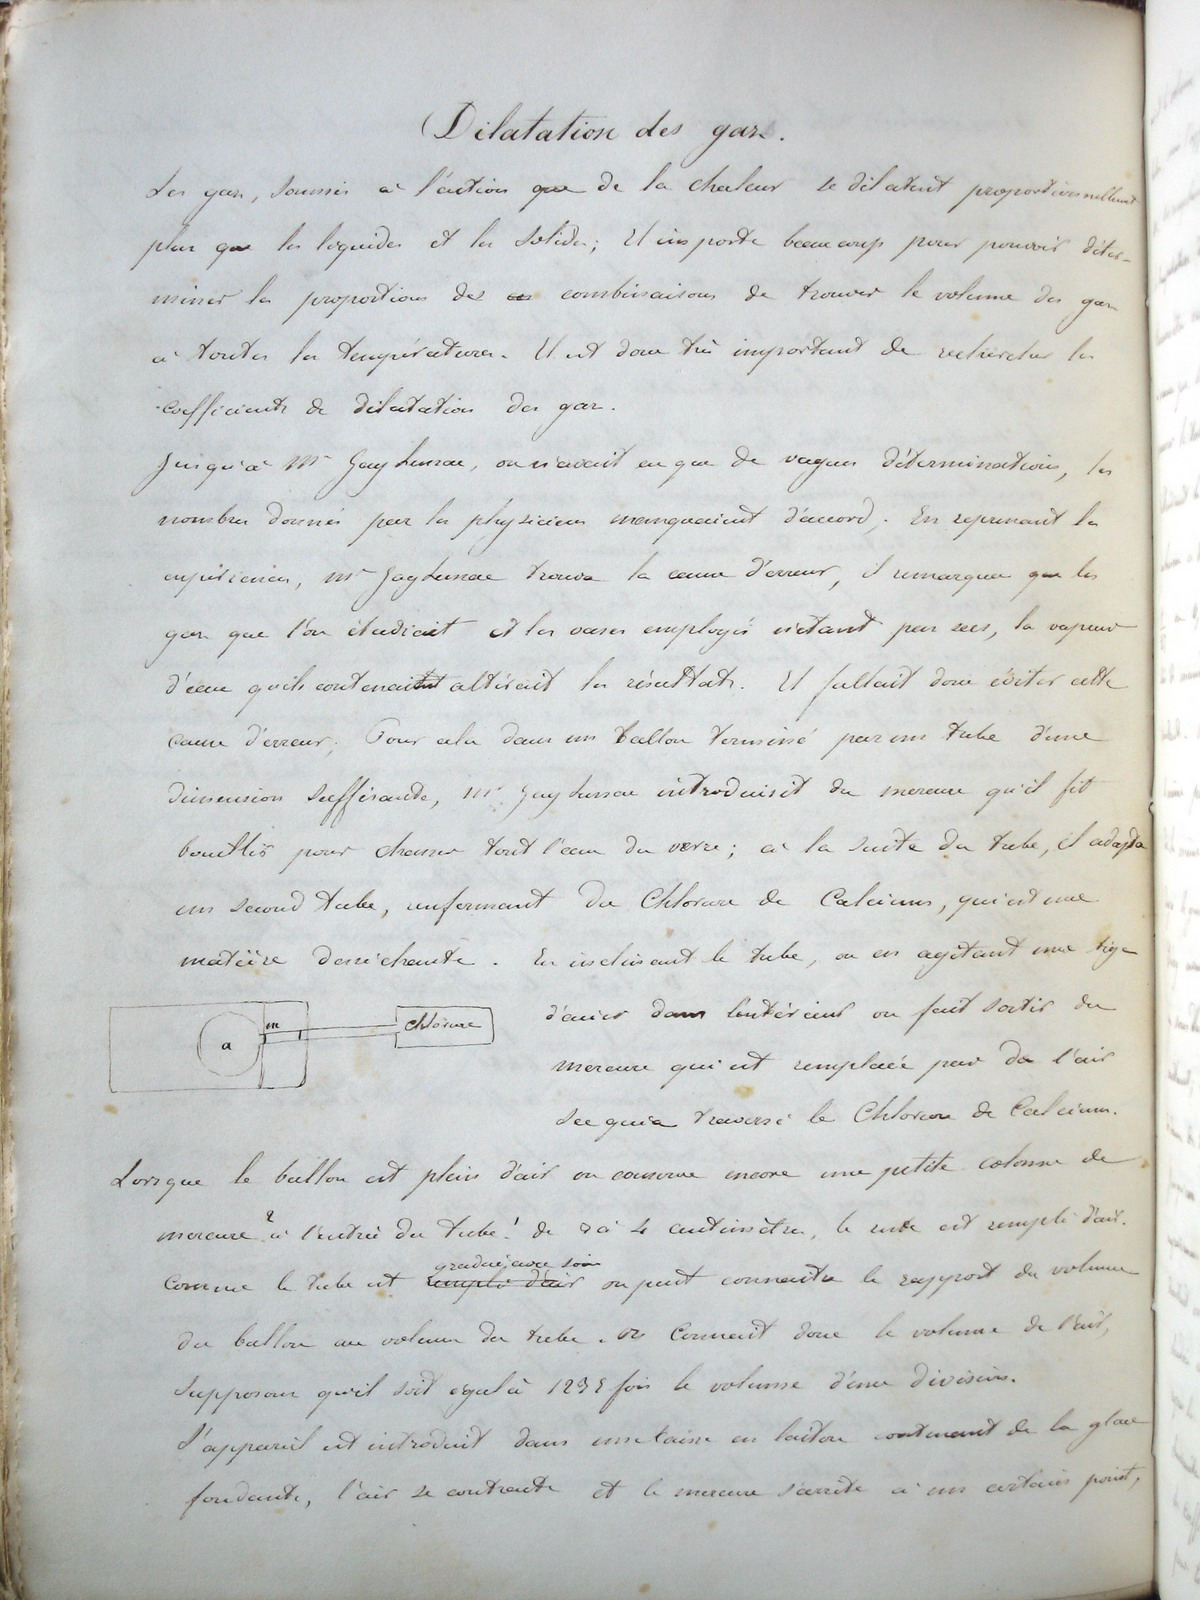 Dilatation des gaz.
Les gaz, soumis à l'action que de la chaleur se dilatent proportionnellement
plus que les liquides et les solides; Il importe beaucoup pour pouvoir déter-
miner les proportions des combinaisons de trouver le volume des gaz
à toutes les températures. Il est donc très important de rechercher les
coefficients de dilatation des gaz.
Jusqu'à Mr Gay Lussac, on n'avait eu que de vagues déterminations, les
nombres donnés par les physiciens manquaient d'accord. En reprenant les
expériences, Mr Gay Lussac trouva la cause d'erreur, il remarqua que les
gaz que l'on étudiait et les vases employés n'étant pas secs, la vapeur
d'eau qu'ils contenait altérait les résultats. Il fallait donc éviter cette
cause d'erreur; Pour cela dans un ballon terminé par un tube d'une
dimension suffisante, Mr Gay Lussac introduisit du mercure qu'il fit
bouillir pour chasser tout l'eau du verre; à la suite du tube, il adapta
un second tube, renfermant du Chlorure de Calcium, qui est une
matière desséchante. En inclinant le tube, ou en agitant une tige
d'acier dans l'intérieur on fait sortir du
mercure qui est remplacée par de l'air
sec qui a traversé le Chlorure de Calcium.
a m chlorure
Lorsque le ballon est plein d'air on conserve encore une petite colonne de
mercure à l'entrée du tube de 3 à 4 centimètres, le reste est rempli d'air.
gradué avec soin
Comme le tube est rempli d'air on peut connaître le rapport du volume
du ballon au volume du tube. on connait donc le volume de l'air,
supposons qu'il soit égal à 1235 fois le volume d'une division.
L'appareil est introduit dans une caisse en laiton contenant de la glace
fondante, l'air se contracte et le mercure s'arrête à un certain point,